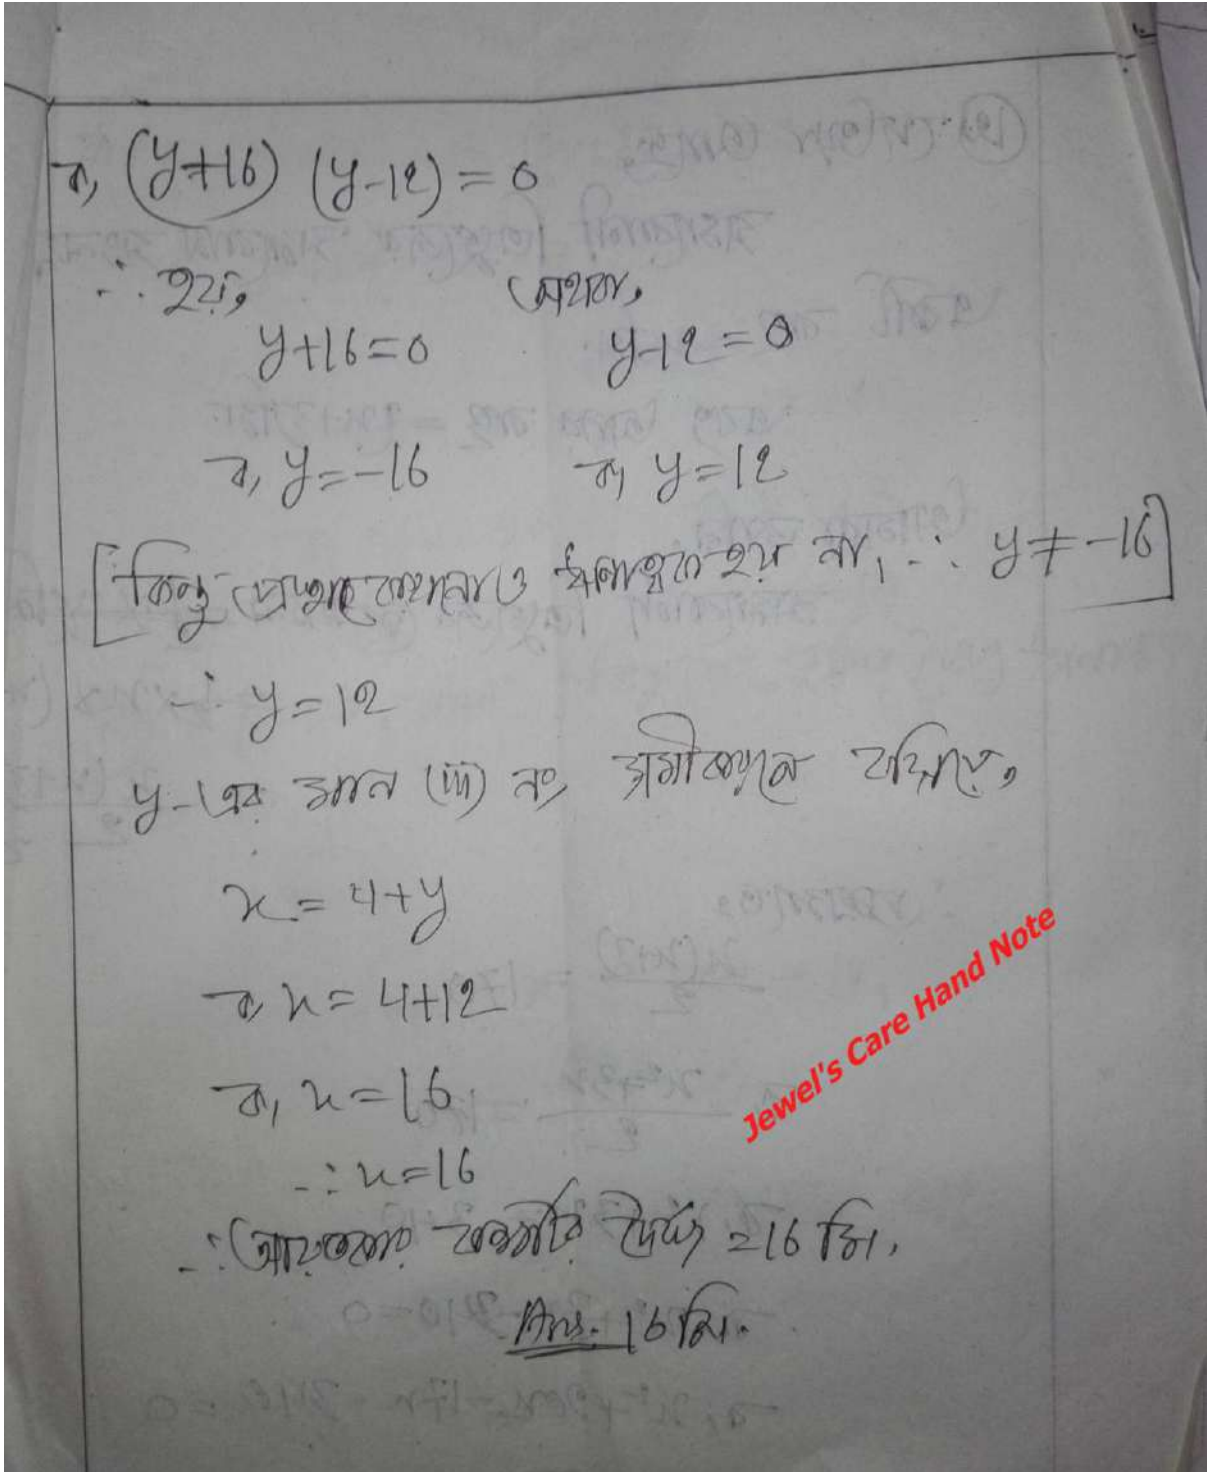 বা, (y+16) (y-12) = 0
∴ হয়, অথবা,
y+16=0 y-12=0
বা, y=-16 বা, y=12
[কিন্তু প্রস্থ কখনোও ঋণাত্বক হয় না, ∴ y≠-16]
∴ y=12
y-এর মান (iii) নং সমীকরণে বসিয়ে,
x=4+y
বা, x=4+12
বা, x=16
∴ x=16
∴ আয়তাকার কক্ষটির দৈর্ঘ্য =16 মি.
Ans. 16 মি.
Jewel's Care Hand Note